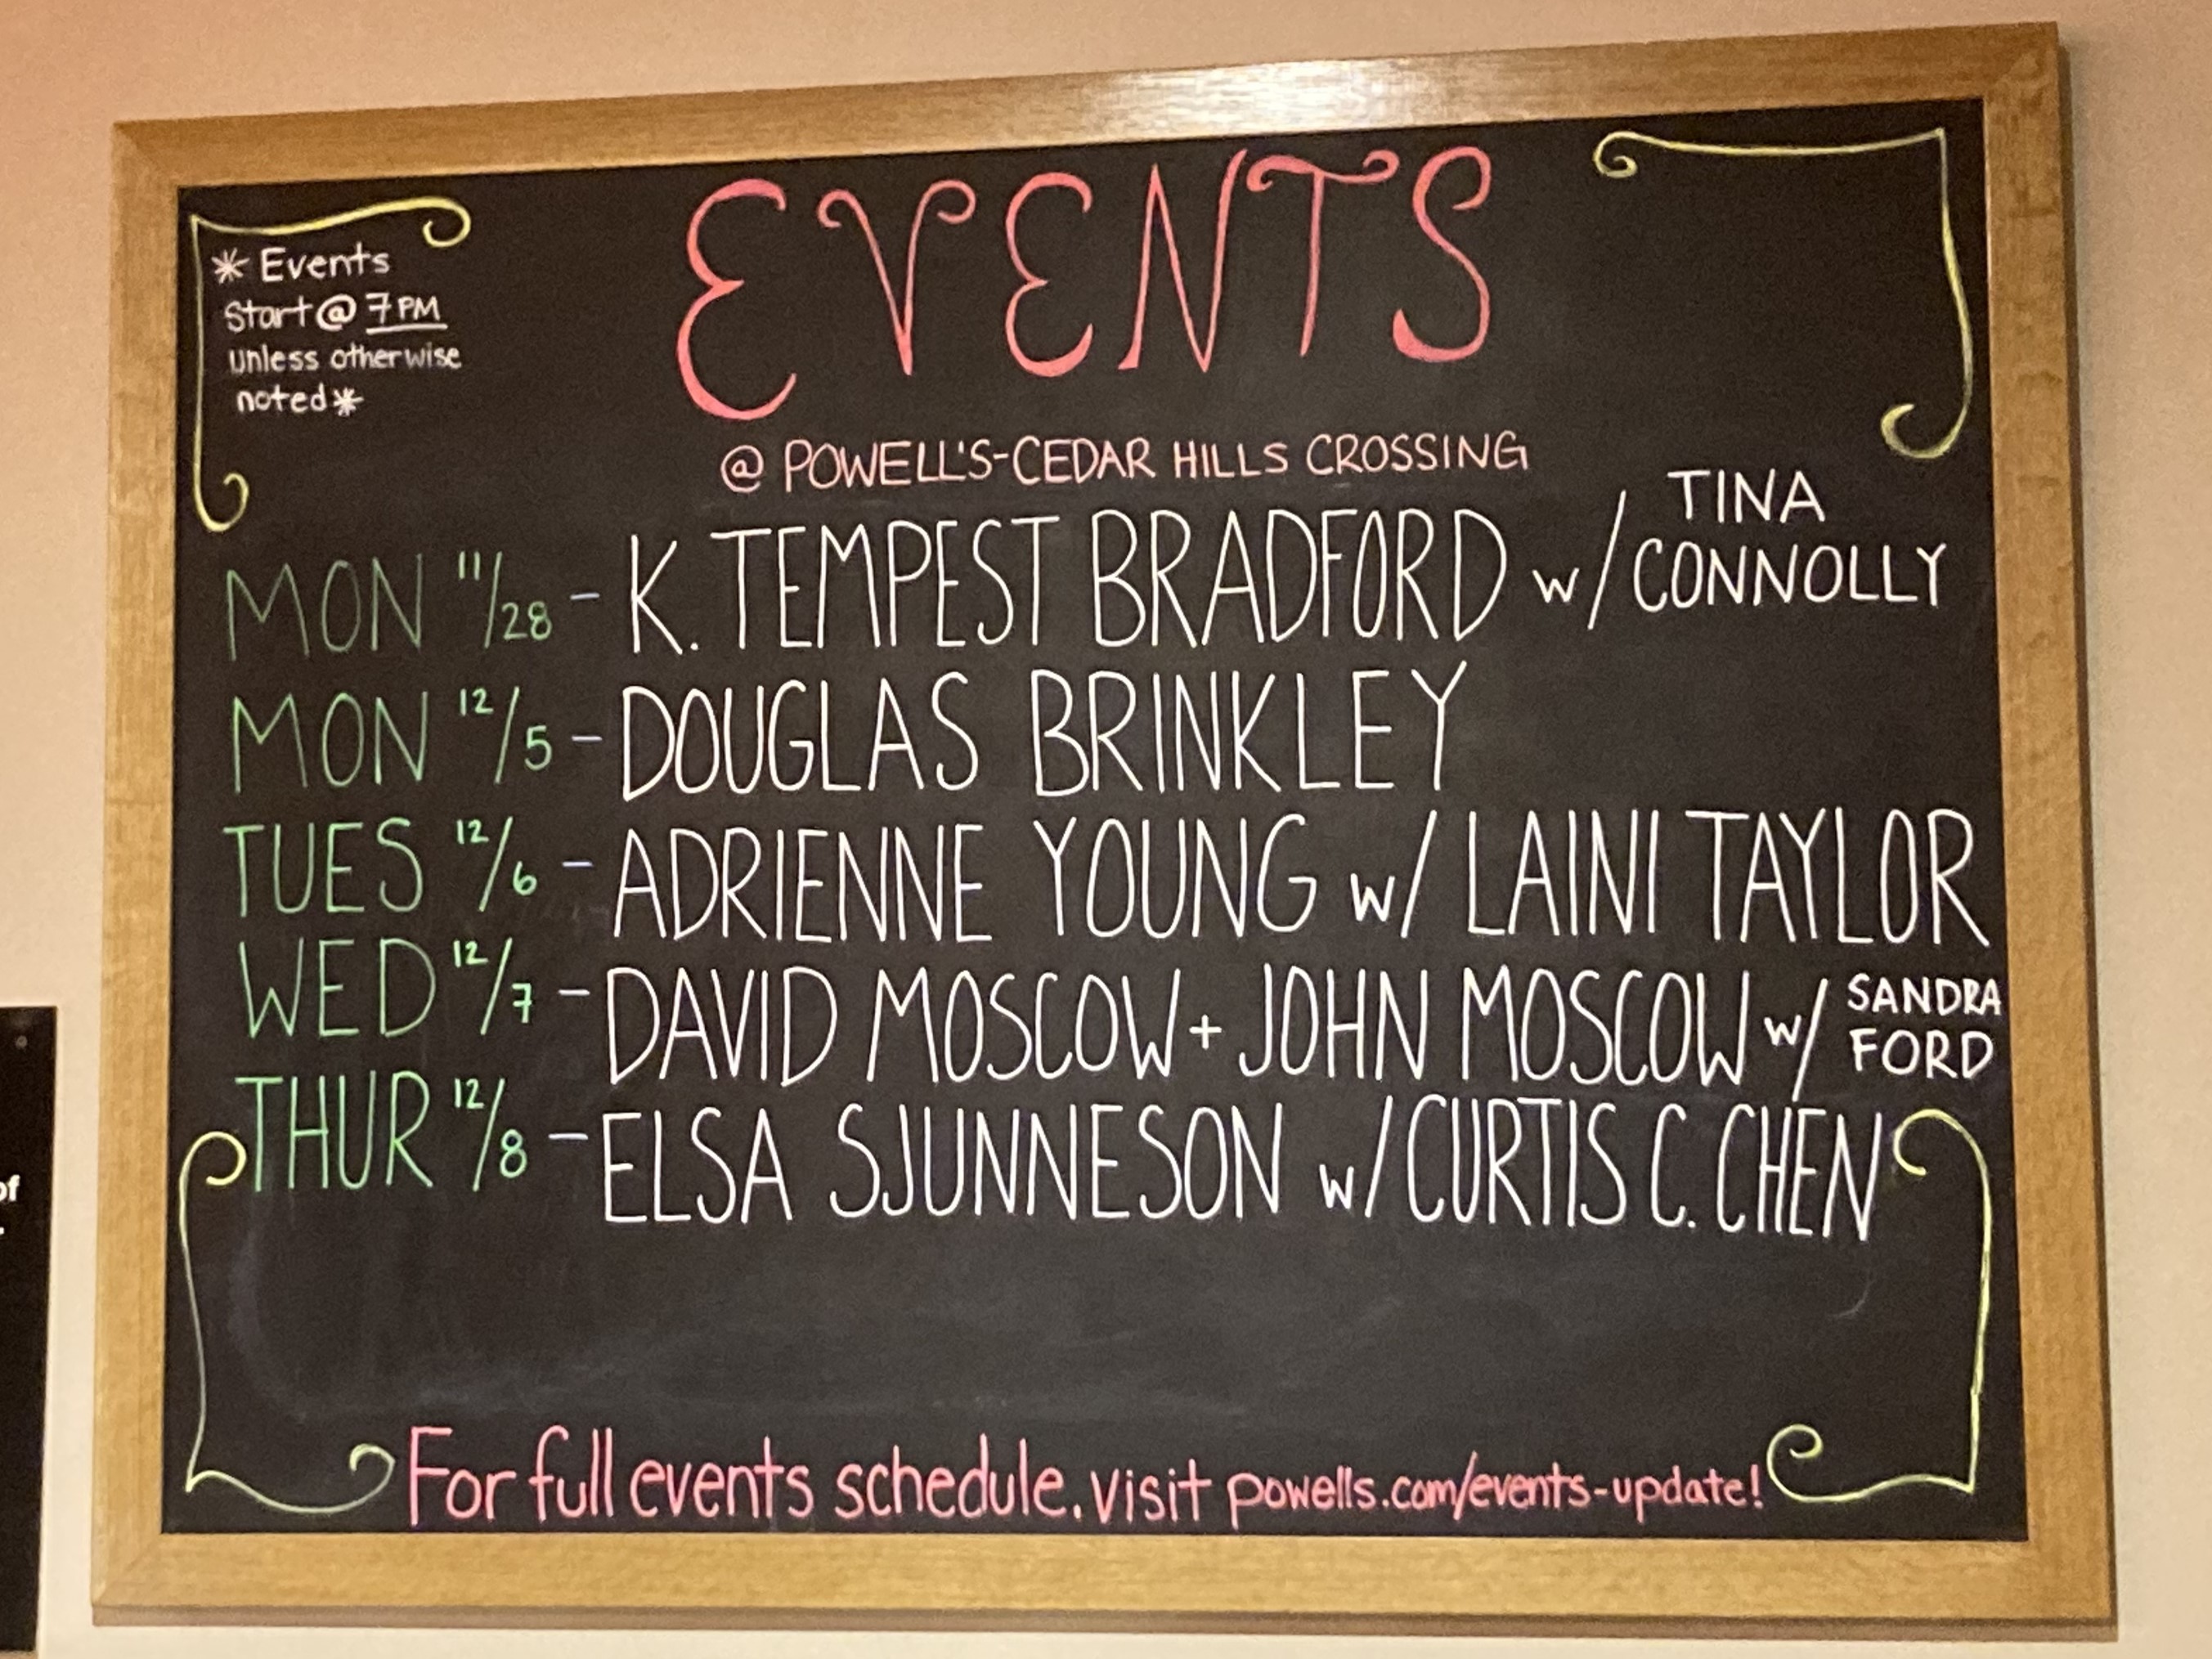 EVENTS
* Events
Start @ 7 PM
unless otherwise
noted *
@ POWELL'S-CEDAR HILLS CROSSING
MON 11/28 - K. TEMPEST BRADFORD w/ TINA CONNOLLY
MON 12/5 - DOUGLAS BRINKLEY
TUES 12/6 - ADRIENNE YOUNG w/ LAINI TAYLOR
WED 12/7 - DAVID MOSCOW + JOHN MOSCOW w/ SANDRA FORD
THUR 12/8 - ELSA SJUNNESON w/ CURTIS C. CHEN
For full events schedule. visit powells.com/events-update!
of